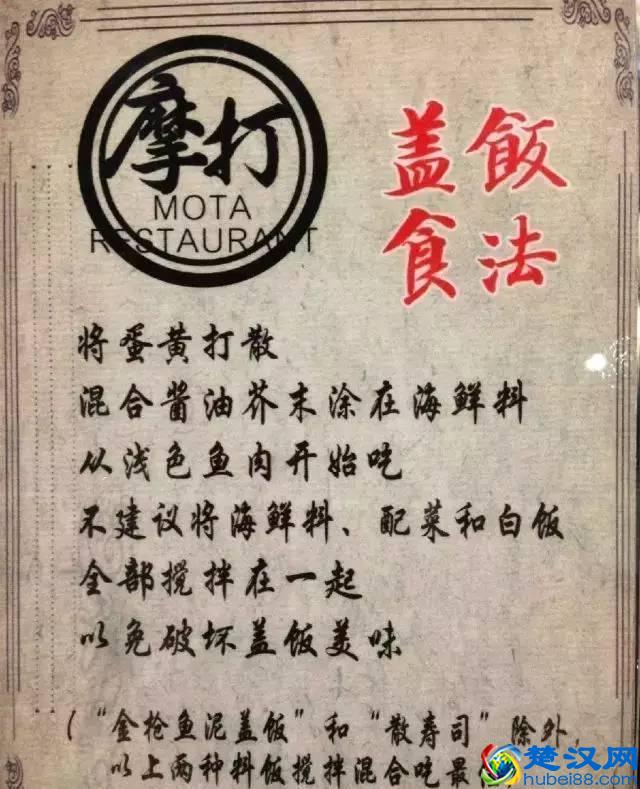 摩打
MOTA
RESTAURANT
盖飯
食法
将蛋黄打散
混合酱油芥末涂在海鲜料
从浅色鱼肉开始吃
不建议将海鲜料、配菜和白饭
全部搅拌在一起
以免破坏盖饭美味
(“金枪鱼泥盖饭”和“散寿司”除外,
以上两种料饭搅拌混合吃最
楚汉网
hubei88.com